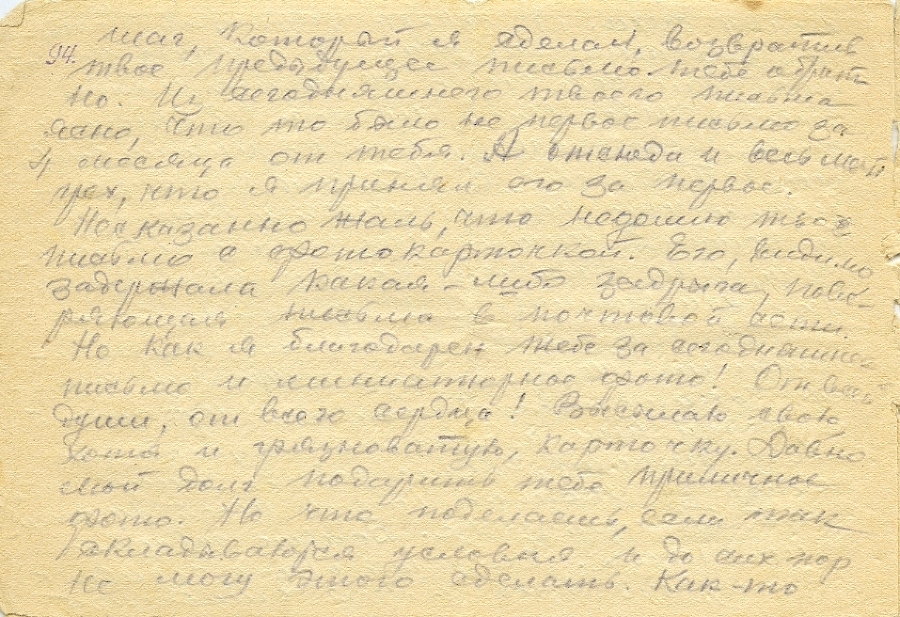 94.
шаг, который я сделал, возвратив
твое предыдущее письмо тебе обрат
но. Из сегодняшнего твоего письма
ясно, что то было не первое письмо за
4 месяца от тебя. А отсюда и весь мой
грех, что я принял его за первое.
Несказанно жаль, что недошло твое
письмо с фотокарточкой. Его, видимо
задержала какая-либо задрыга, пове-
ряющая письма в почтовой
Но как я благодарен тебе за сегодняшнее
письмо и миниатюрное фото! От всей
души, от всего сердца! Высылаю свою
хотя и грязноватую, карточку. Давно
мой долг подарить тебе приличное
фото. Но что поделаешь, если так
складываются условия и до сих пор
не могу этого сделать. Как-то